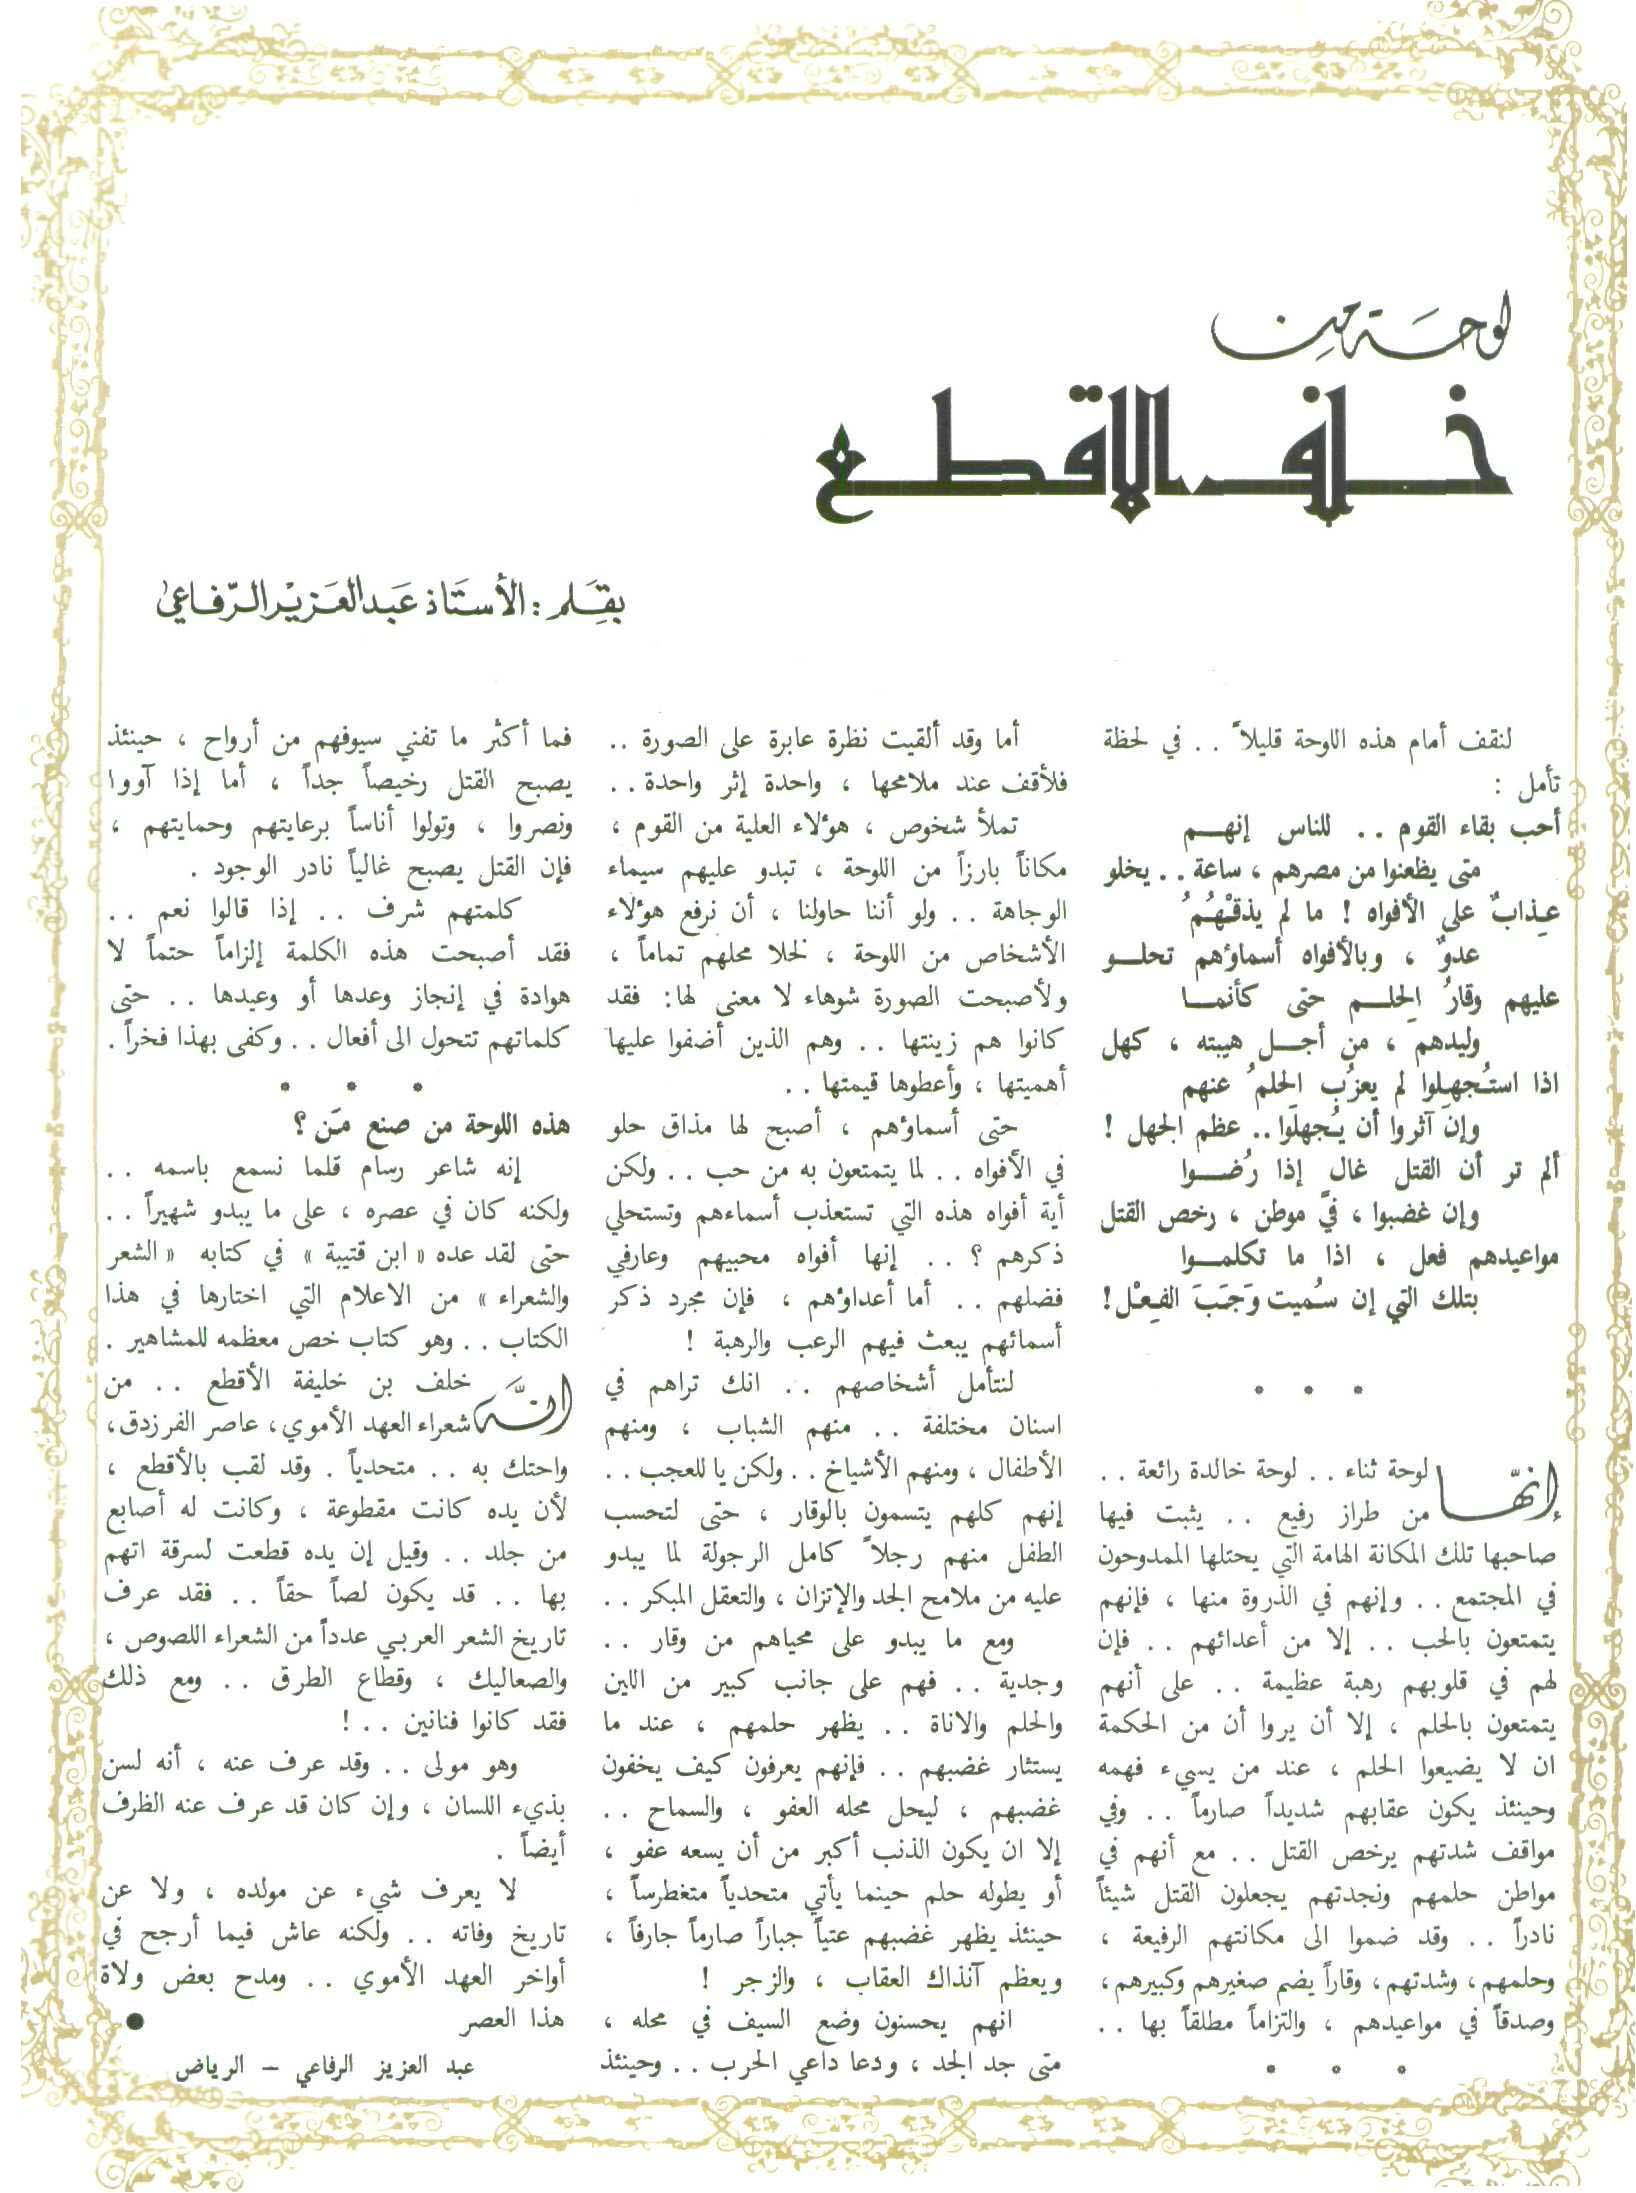 لوحة من
خلف الاقطع
بقلم : الأستاذ عبد العزيز الرفاعي
لنقف أمام هذه اللوحة قليلاً . . في لحظة
تأمل :
أحب بقاء القوم . . للناس إنهم
متى يظعنوا من مصرهم ، ساعة . . يخلو
عِذابٌ على الأفواه ! ما لم يذقْهُمُ
عدوٌ ، وبالأفواه أسماؤهم تحلو
عليهم وقارُ الحِلم حتى كأنما
وليدهم ، من أجل هيبته ، كهل
اذا استُجهِلوا لم يعزُب الحلمُ عنهم
وإن آثروا أن يُجهلَوا . . عظم الجهل !
ألم تر أن القتل غال إذا رُضوا
وإن غضبوا ، فيَّ موطن ، رخص القتل
مواعيدهم فعل ، اذا ما تكلموا
بتلك التي إن سُميت وَجَبَ الفِعْل !
• • •
إنهّا لوحة ثناء . . لوحة خالدة رائعة . .
من طراز رفيع . . يثبت فيها
صاحبها تلك المكانة الهامة التي يحتلها الممدوحون
في المجتمع . . وإنهم في الذروة منها ، فإنهم
يتمتعون بالحب . . إلا من أعدائهم . . فإن
لهم في قلوبهم رهبة عظيمة . . على أنهم
يتمتعون بالحلم ، إلا أن يروا أن من الحكمة
ان لا يضيعوا الحلم ، عند من يسيء فهمه
وحينئذ يكون عقابهم شديداً صارماً . . وفي
مواقف شدتهم يرخص القتل . . مع أنهم في
مواطن حلمهم ونجدتهم يجعلون القتل شيئاً
نادراً . . وقد ضموا الى مكانتهم الرفيعة ،
وحلمهم ، وشدتهم ، وقاراً يضم صغيرهم وكبيرهم ،
وصدقاً في مواعيدهم ، والتزاماً مطلقاً بها . .
• • •
أما وقد ألقيت نظرة عابرة على الصورة . .
فلأقف عند ملامحها ، واحدة إثر واحدة . .
تملأ شخوص ، هؤلاء العلية من القوم ،
مكاناً بارزاً من اللوحة ، تبدو عليهم سيماء
الوجاهة . . ولو أننا حاولنا ، أن نرفع هؤلاء
الأشخاص من اللوحة ، لخلا محلهم تماماً ،
ولأصبحت الصورة شوهاء لا معنى لها : فقد
كانوا هم زينتها . . وهم الذين أضفوا عليها
أهميتها ، وأعطوها قيمتها . .
حتى أسماؤهم ، أصبح لها مذاق حلو
في الأفواه . . لما يتمتعون به من حب . . ولكن
أية أفواه هذه التي تستعذب أسماءهم وتستحلي
ذكرهم ؟ . . إنها أفواه محبيهم وعارفي
فضلهم . . أما أعداؤهم ، فإن مجرد ذكر
أسمائهم يبعث فيهم الرعب والرهبة !
لنتأمل أشخاصهم . . انك تراهم في
اسنان مختلفة . . منهم الشباب ، ومنهم
الأطفال ، ومنهم الأشياخ . . ولكن يا للعجب . .
إنهم كلهم يتسمون بالوقار ، حتى لتحسب
الطفل منهم رجلاً كامل الرجولة لما يبدو
عليه من ملامح الجد والإتزان ، والتعقل المبكر . .
ومع ما يبدو على محياهم من وقار . .
وجدية . . فهم على جانب كبير من اللين
والحلم والاناة . . يظهر حلمهم ، عند ما
يستثار غضبهم . . فإنهم يعرفون كيف يخفون
غضبهم ، ليحل محله العفو ، والسماح . .
إلا ان يكون الذنب أكبر من أن يسعه عفو ،
أو يطوله حلم حينما يأتي متحدياً متغطرساً ،
حينئذ يظهر غضبهم عتياً جباراً صارماً جارفاً ،
ويعظم آنذاك العقاب ، والزجر !
انهم يحسنون وضع السيف في محله ،
متى جد الجد ، ودعا داعي الحرب . . وحينئذ
فما أكثر ما تفني سيوفهم من أرواح ، حينئذ
يصبح القتل رخيصاً جداً ، أما إذا آووا
ونصروا ، وتولوا أناساً برعايتهم وحمايتهم ،
فإن القتل يصبح غالياً نادر الوجود .
كلمتهم شرف . . إذا قالوا نعم . .
فقد أصبحت هذه الكلمة إلزاماً حتماً لا
هوادة في إنجاز وعدها أو وعيدها . . حتى
كلماتهم تتحول الى أفعال . . وكفى بهذا فخراً .
• • •
هذه اللوحة من صنع مَن ؟
إنه شاعر رسام قلما نسمع باسمه . .
ولكنه كان في عصره ، على ما يبدو شهيراً . .
حتى لقد عده « ابن قتيبة » في كتابه « الشعر
والشعراء » من الاعلام التي اختارها في هذا
الكتاب . . وهو كتاب خص معظمه للمشاهير .
انهَّ خلف بن خليفة الأقطع . . من
شعراء العهد الأموي ، عاصر الفرزدق ،
واحتك به . . متحدياً . وقد لقب بالأقطع ،
لأن يده كانت مقطوعة ، وكانت له أصابع
من جلد . . وقيل إن يده قطعت لسرقة اتهم
بها . . قد يكون لصاً حقاً . . فقد عرف
تاريخ الشعر العربي عدداً من الشعراء اللصوص ،
والصعاليك ، وقطاع الطرق . . ومع ذلك
فقد كانوا فنانين . . !
وهو مولى . . وقد عرف عنه ، أنه لسن
بذيء اللسان ، وإن كان قد عرف عنه الظرف
أيضاً .
لا يعرف شيء عن مولده ، ولا عن
تاريخ وفاته . . ولكنه عاش فيما أرجح في
أواخر العهد الأموي . . ومدح بعض ولاة
هذا العصر ●
عبد العزيز الرفاعي – الرياض